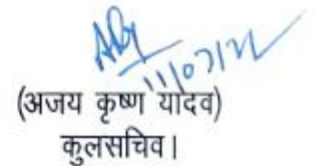 11/07/22
(अजय कृष्ण यादव)
कुलसचिव।